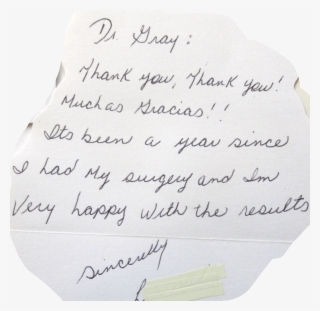 Dr Gray:
Thank you, Thank you!
Muchas Gracias!!
Its been a year since
I had My surgery and Im
Very happy with the results
sincerelly